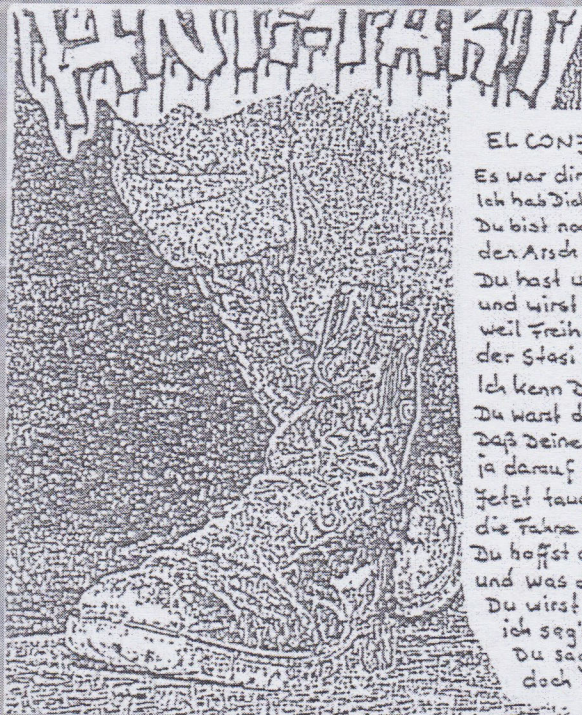 ANTI-FAKT
EL CON
Es war dir
Ich hab Dich
Du bist no
den Arsch
Du hast u
und wirst
weil Freih
der Stasi
Ich kenn D
Du warst d
Daß Deine
ja darauf
Jetzt tau
die Fahne
Du hoffst
und was
Du wirst
ich sag
Du sa
doch